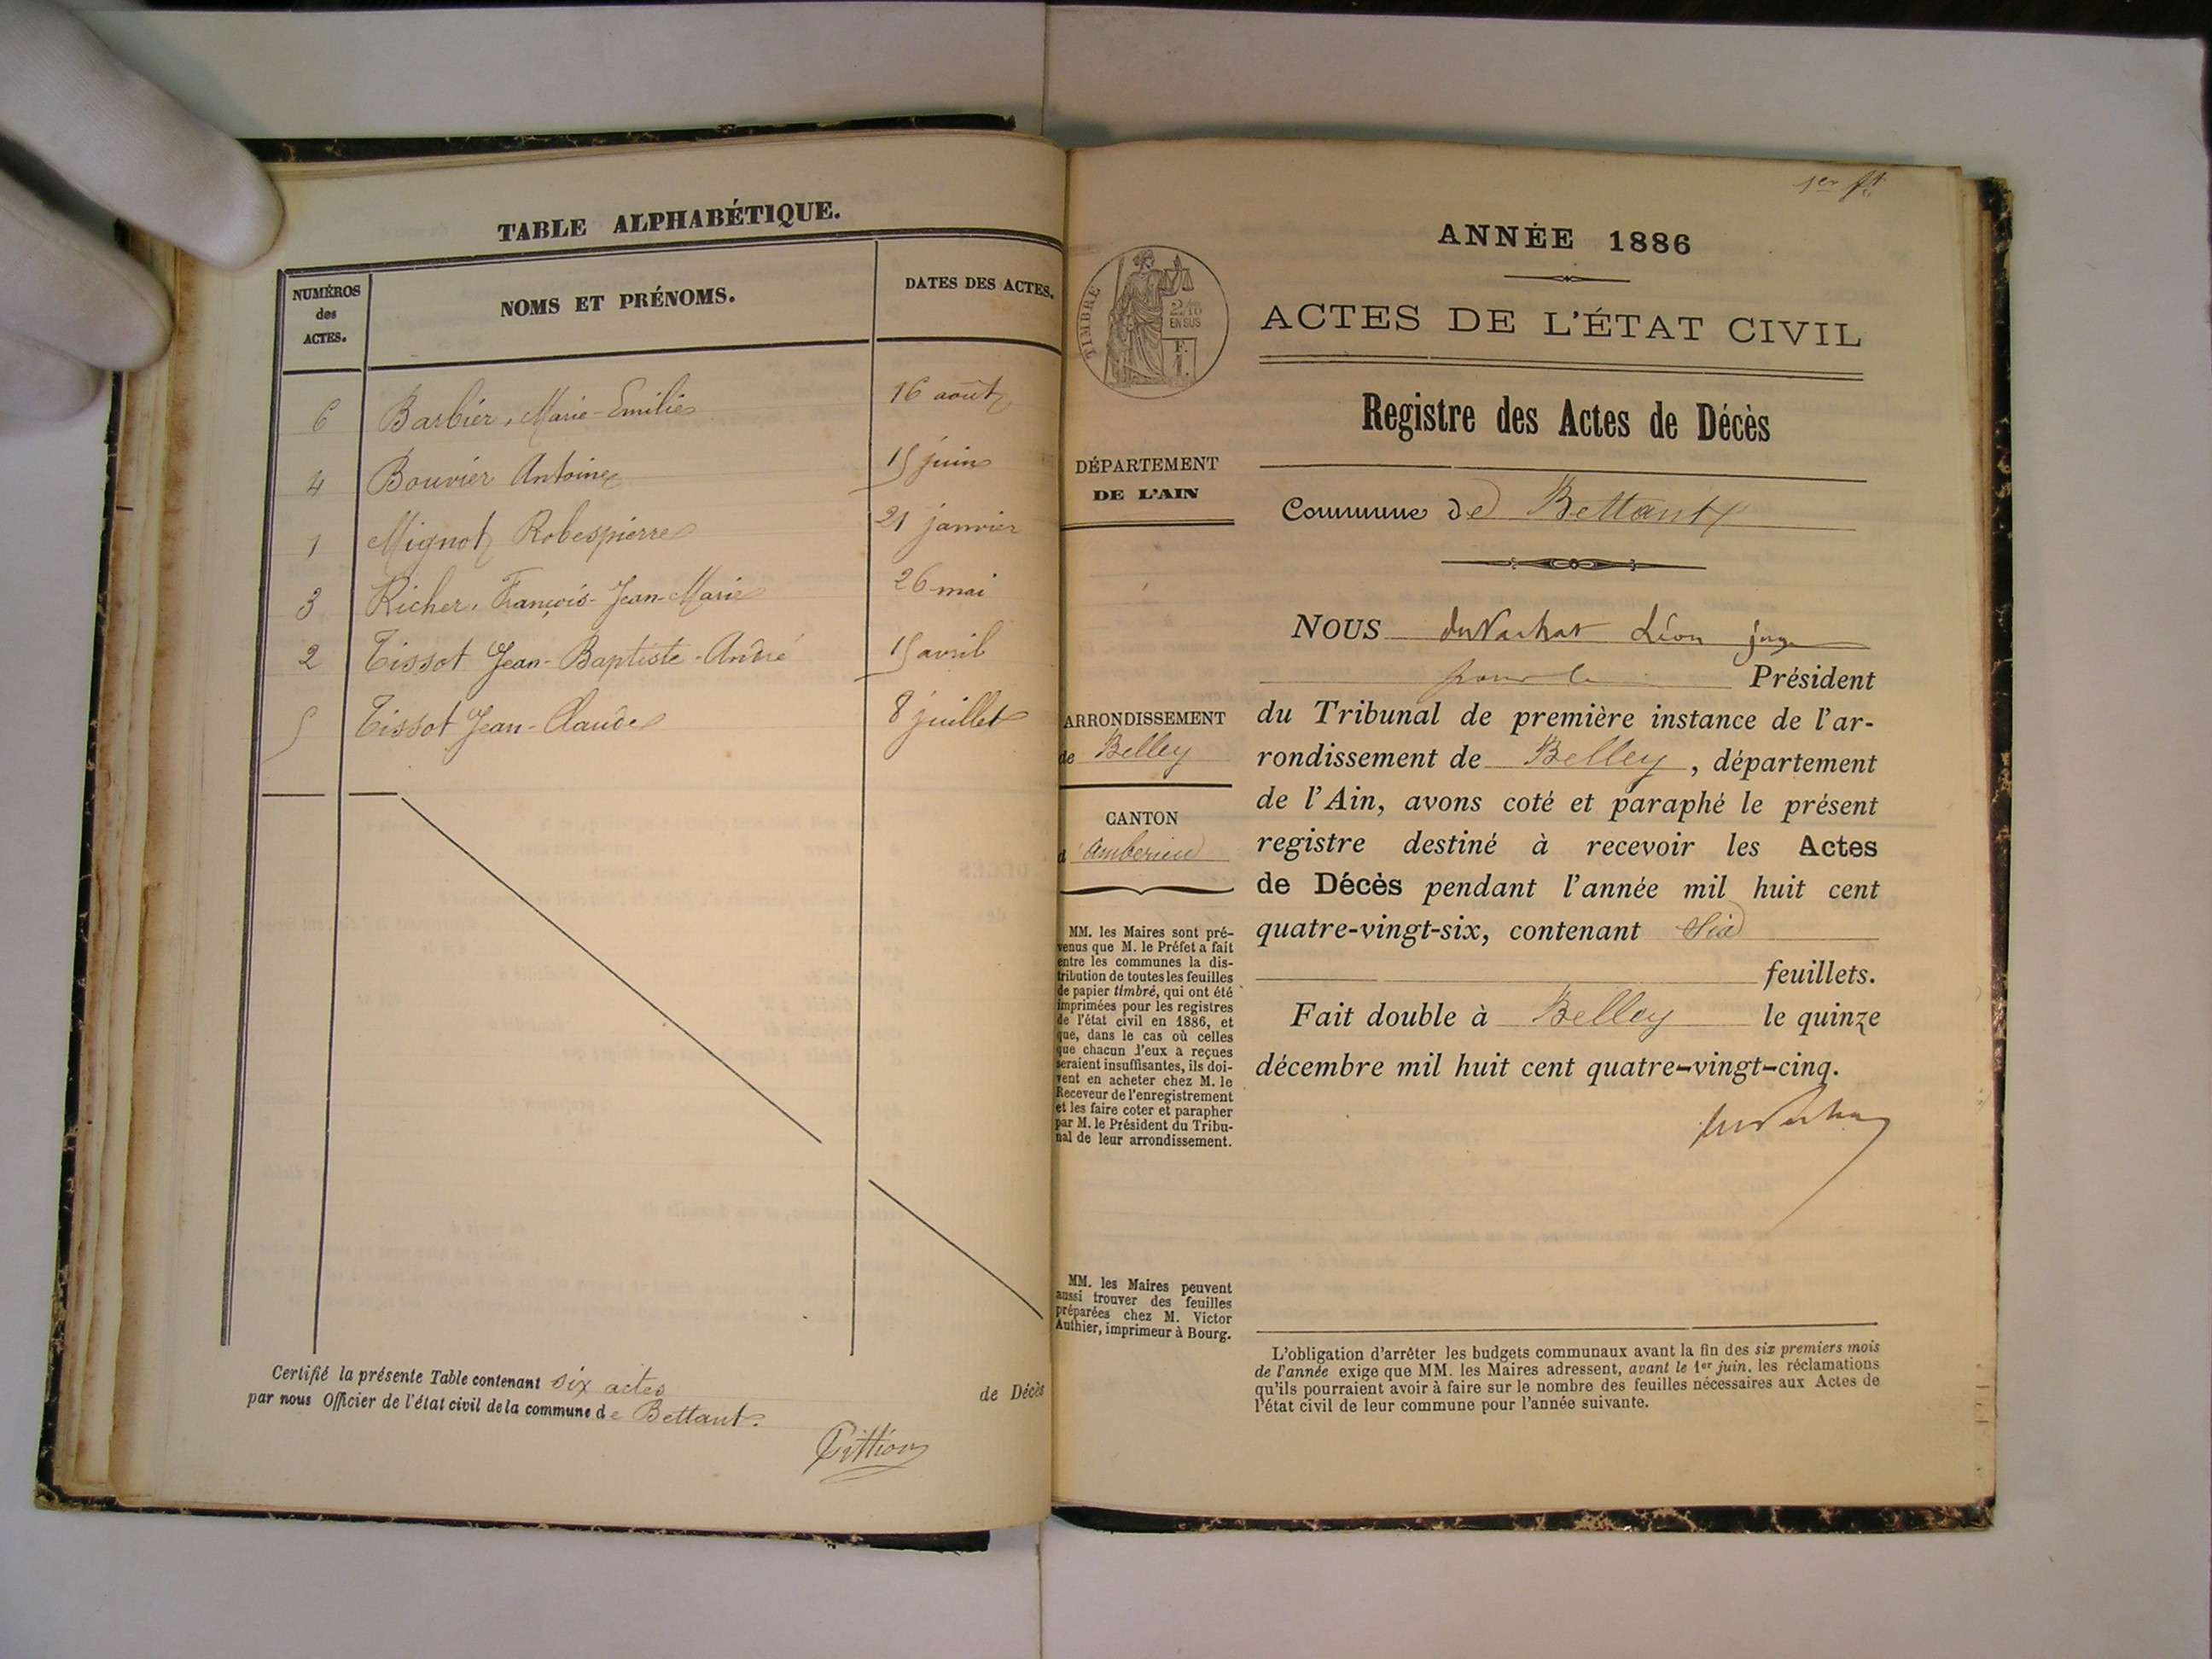 TABLE ALPHABÉTIQUE.
NUMÉROS des ACTES.
NOMS ET PRÉNOMS.
DATES DES ACTES.
6 Barbier, Marie-Emilie 16 août
4 Bouvier Antoine 15 juin
1 Mignot Robespierre 21 janvier
3 Richer, François-Jean-Marie 26 mai
2 Tissot Jean-Baptiste-André 15 avril
5 Tissot Jean-Claude 8 juillet
Certifié la présente Table contenant six actes de Décès
par nous Officier de l'état civil de la commune de Bettant.
Pittion
1er ft
ANNÉE 1886
ACTES DE L'ÉTAT CIVIL
TIMBRE
2/10
EN SUS
Registre des Actes de Décès
DÉPARTEMENT
DE L'AIN
Commune de Bettant
NOUS Léon juge
pour le Président
du Tribunal de première instance de l'ar-
rondissement de Belley, département
de l'Ain, avons coté et paraphé le présent
registre destiné à recevoir les Actes
de Décès pendant l'année mil huit cent
quatre-vingt-six, contenant Six
feuillets.
Fait double à Belley le quinze
décembre mil huit cent quatre-vingt-cinq.
ARRONDISSEMENT
de Belley
CANTON
d'Ambérieu
MM. les Maires sont pré-
venus que M. le Préfet a fait
entre les communes la dis-
tribution de toutes les feuilles
de papier timbré, qui ont été
imprimées pour les registres
de l'état civil en 1886, et
que, dans le cas où celles
que chacun d'eux a reçues
seraient insuffisantes, ils doi-
vent en acheter chez M. le
Receveur de l'enregistrement
et les faire coter et parapher
par M. le Président du Tribu-
nal de leur arrondissement.
MM. les Maires peuvent
aussi trouver des feuilles
préparées chez M. Victor
Authier, imprimeur à Bourg.
L'obligation d'arrêter les budgets communaux avant la fin des six premiers mois
de l'année exige que MM. les Maires adressent, avant le 1er juin, les réclamations
qu'ils pourraient avoir à faire sur le nombre des feuilles nécessaires aux Actes de
l'état civil de leur commune pour l'année suivante.